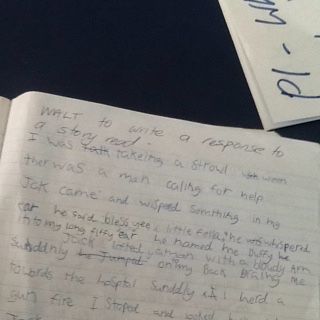 WALT to write a response to
a story read.
I was takeing a strowl when
ther was a man caling for help
Jack came and wisperd somthing in my
ear he said bless yee little fella he whisperd
into my long fluffy ear he named me Duffy he
JACK lifted yatman with a bloudy arm
Sunddnly he Jumped on my Back Briging me
towords the hospitol Sunddly I herd a
gun fire I Stoped and looked
M-1d